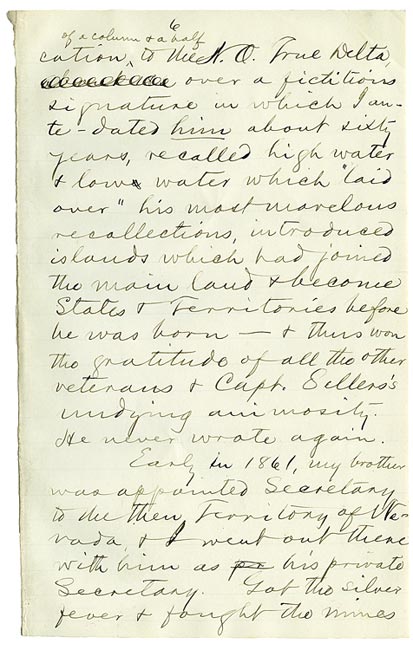 6
of a column & a half
cation, to the N. O. True Delta,
over a fictitious
signature in which I an-
te-dated him about sixty
years, recalled high water
& low water which "laid
over" his most marvelous
recollections, introduced
islands which had joined
the main land & become
States & Territories before
he was born — & thus won
the gratitude of all the other
veterans & Capt. Sellers's
undying animosity.
He never wrote again.
Early in 1861, my brother
was appointed Secretary
to the then Territory of Ne-
vada, & I went out there
with him as pr his private
Secretary. Got the silver
fever & fought the mines